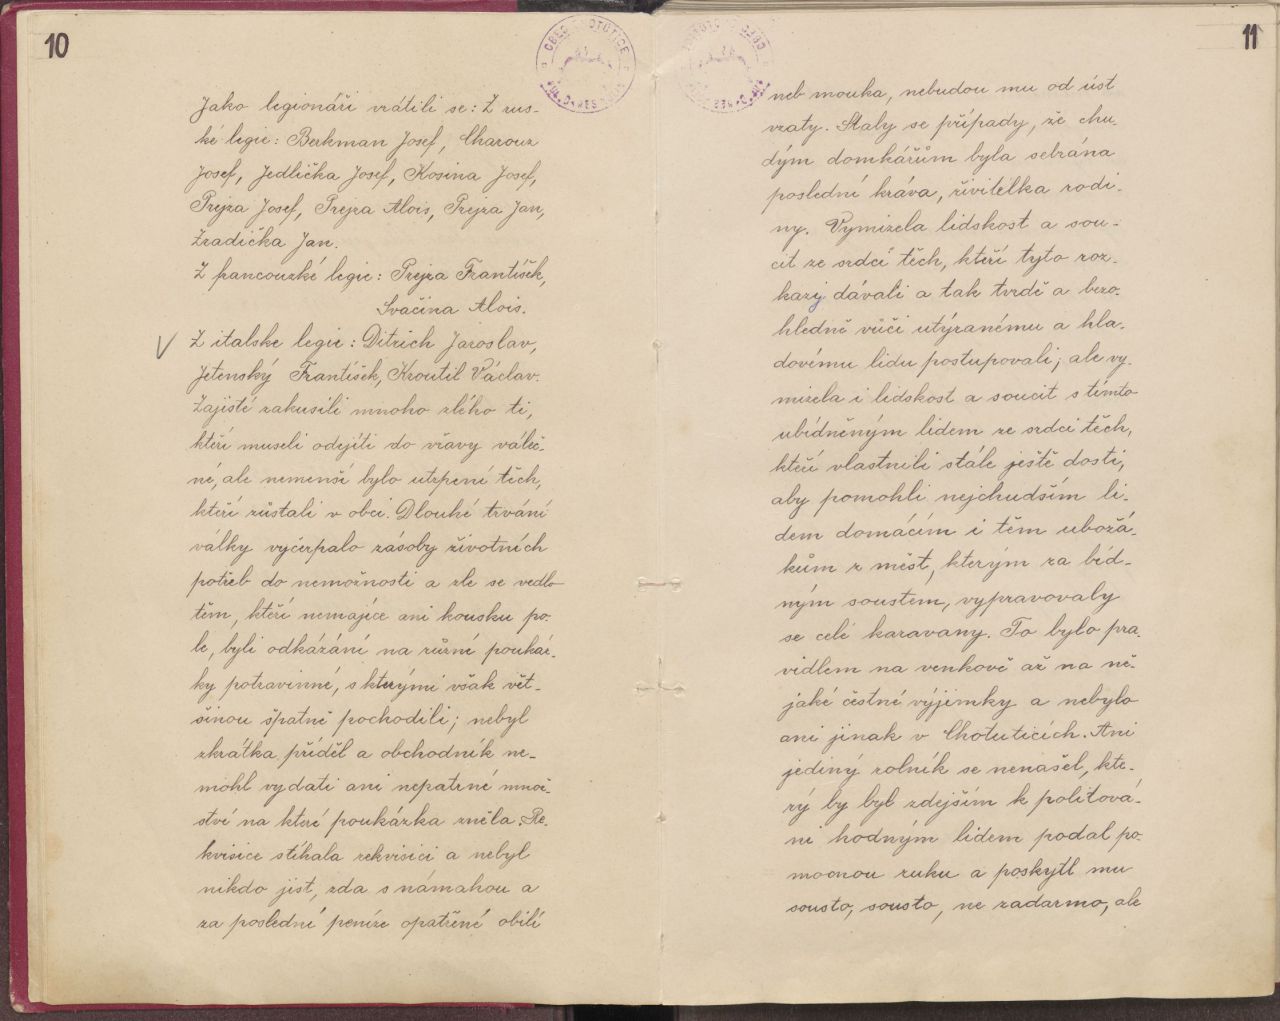 10
Jako legionáři vrátili se: Z rus-
ké legie: Berkman Josef, Charouz
Josef, Jedlička Josef, Kosina Josef,
Prejza Josef, Prejza Alois, Prejza Jan,
Zradička Jan.
Z francouzké legie: Prejza Frantíšek,
Svačina Alois.
V Z italske legie: Ditrich Jaroslav,
Jetenský Frantíšek, Kroutil Václav.
Zajisté zakusili mnoho zlého ti,
kteří museli odejíti do vřavy váleč-
né, ale nemenší bylo utrpení těch,
kteří zůstali v obci. Dlouhé trvání
války vyčerpalo zásoby životních
potřeb do nemožnosti a zle se vedlo
těm, kteří nemajíce ani kousku po-
le, byli odkázáni na různé poukáz-
ky potravinné, s kterými však vět-
šinou špatně pochodili; nebyl
zkrátka příděl a obchodník ne-
mohl vydati ani nepatrné množ-
ství na které poukázka zněla. Re-
kvisice stíhala rekvisici a nebyl
nikdo jist, zda s námahou a
za poslední peníze opatřené obilí
OBEC CHOTUTICE
11
neb mouka, nebudou mu od úst
vzaty. Staly se případy, že chu-
dým domkářům byla sebrána
poslední kráva, živitelka rodi-
ny. Vymizela lidskost a sou-
cit ze srdcí těch, kteří tyto roz-
kazy dávali a tak tvrdě a bezo-
hledně vůči utýranému a hla-
dovému lidu postupovali; ale vy-
mizela i lidskost a soucit s tímto
ubídněným lidem ze srdci těch,
kteří vlastnili stále ještě dosti,
aby pomohli nejchudším li-
dem domácím i těm ubožá-
kům z měst, kterým za bíd-
ným soustem, vypravovaly
se celé karavany. To bylo pra-
vidlem na venkově až na ně-
jaké čestné výjimky a nebylo
ani jinak v Chotuticích. Ani
jediný rolník se nenašel, kte-
rý by byl zdejším k politová-
ni hodným lidem podal po-
mocnou ruku a poskytl mu
sousto, sousto, ne zadarmo, ale